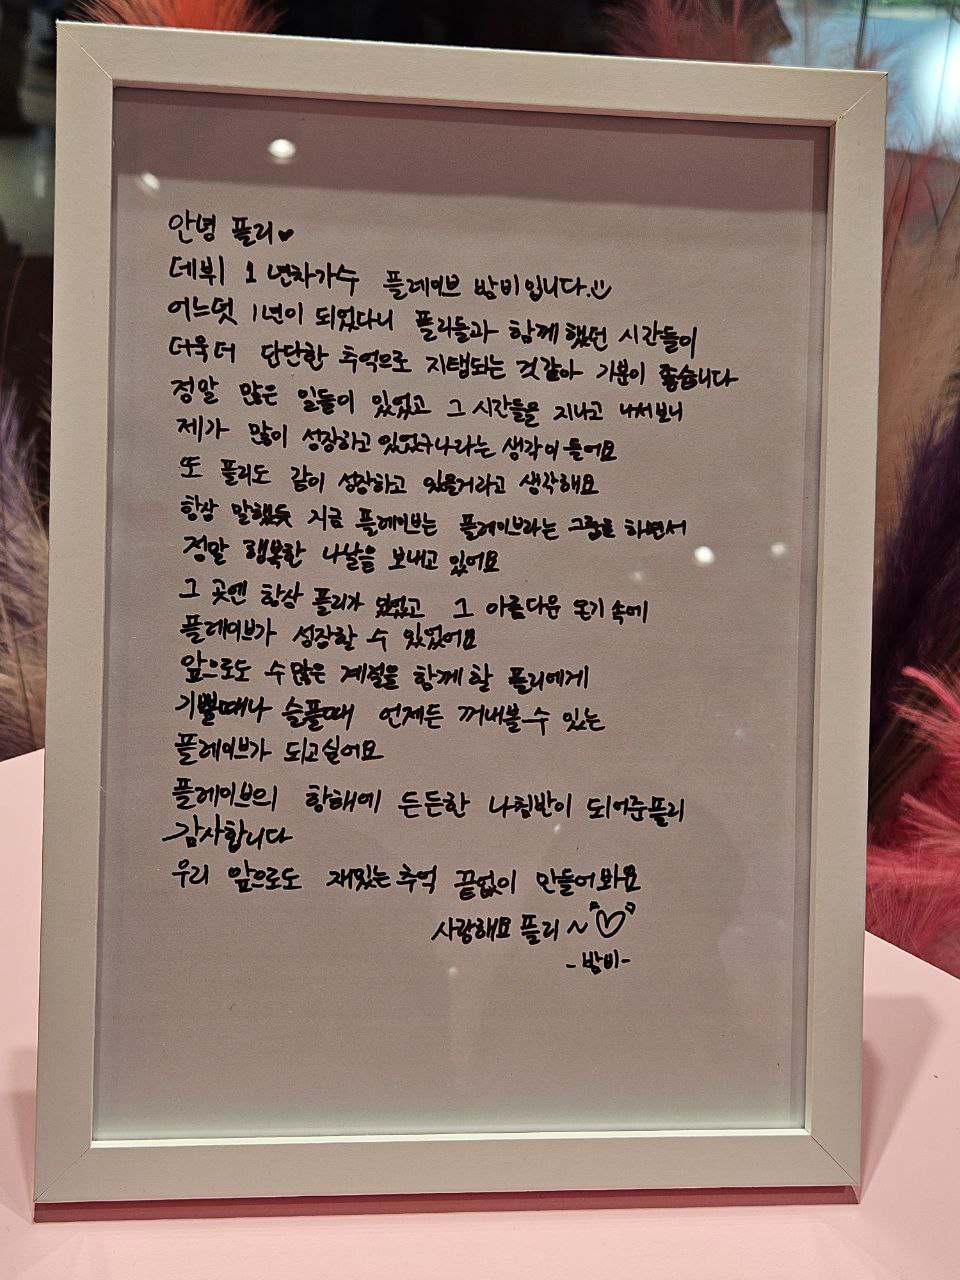 안녕 플리♥
데뷔 1년차가수 플레이브 밤비입니다.
어느덧 1년이 되었다니 플리들과 함께했던 시간들이
더욱더 단단한 추억으로 지탱되는 것같아 기분이 좋습니다
정말 많은 일들이 있었고 그 시간들을 지나고 나서보니
제가 많이 성장하고 있었구나라는 생각이 들어요
또 플리도 같이 성장하고 있을거라고 생각해요
항상 말했듯 지금 플레이브는 플레이브라는 그룹을 하면서
정말 행복한 나날을 보내고 있어요
그 곳엔 항상 플리가 있었고 그 아름다운 온기 속에
플레이브가 성장할 수 있었어요
앞으로도 수많은 계절을 함께 할 플리에게
기쁠때나 슬플때 언제든 꺼내볼 수 있는
플레이브가 되고싶어요
플레이브의 항해에 든든한 나침반이 되어준플리
감사합니다
우리 앞으로도 재밌는 추억 끝없이 만들어봐요
사랑해요 플리~♡
-밤비-